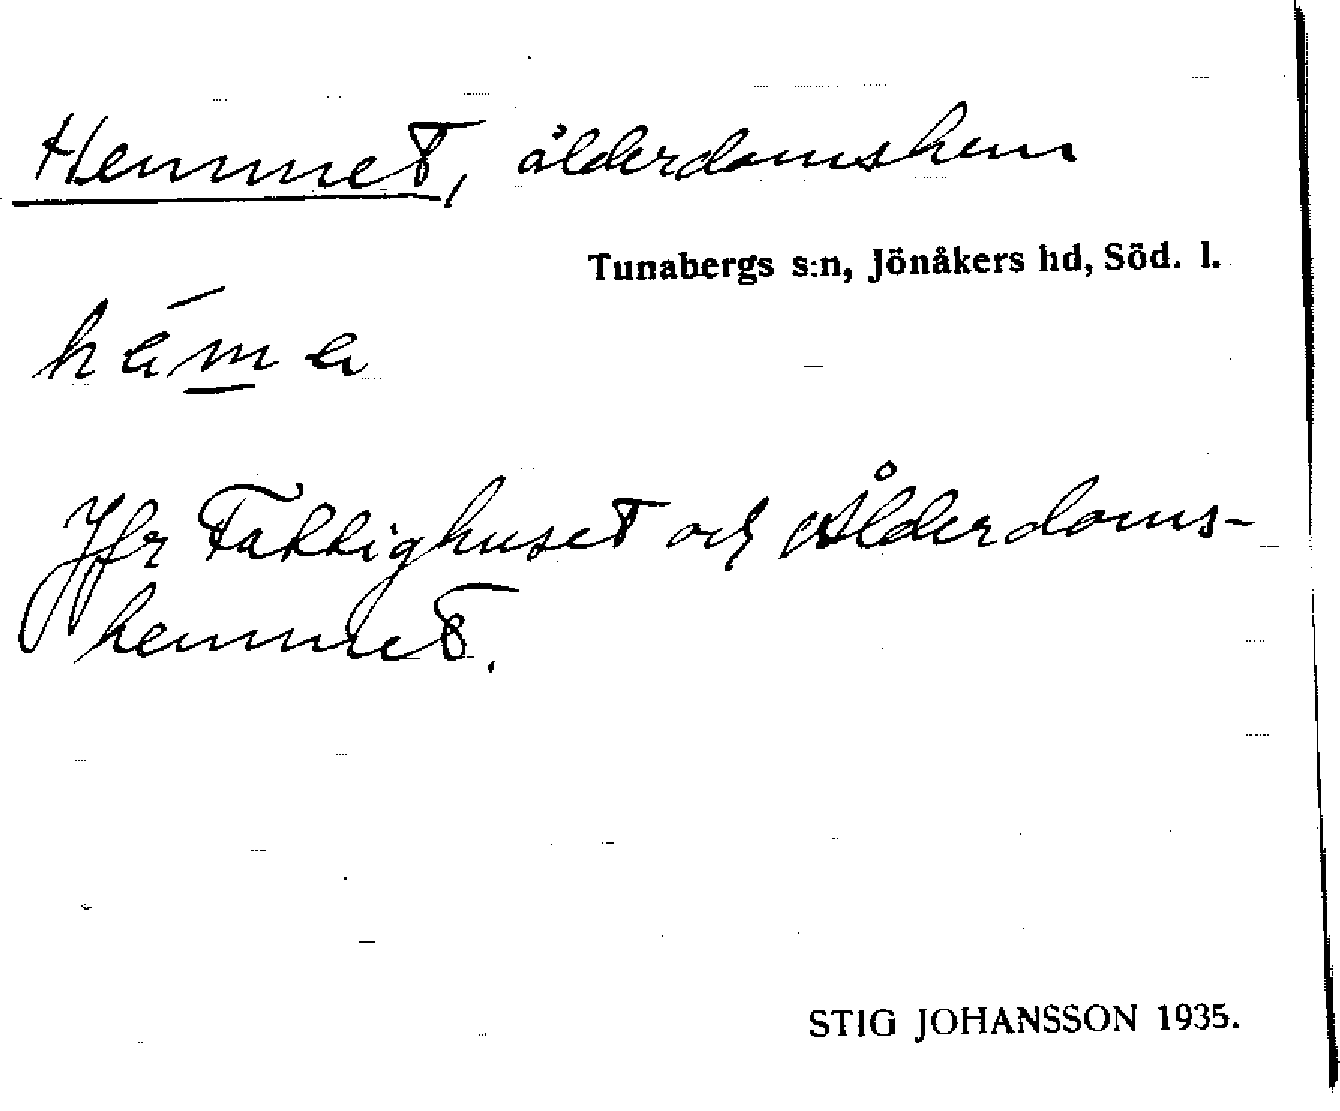 Hemmet, ålderdomshem
Tunabergs s:n, Jönåkers hd, Söd. l.
hema
Jfr Fattighuset och Ålderdoms-
hemmet.
STIG JOHANSSON 1935.